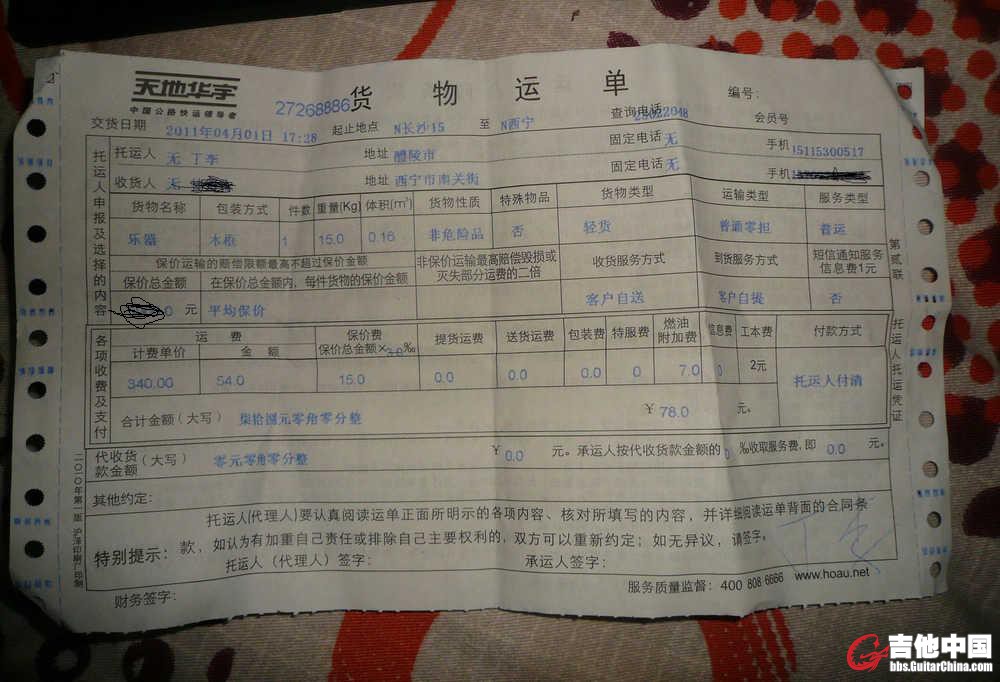 天地华宇
中国公路快运领导者
27268886 货物运单 编号:
交货日期 2011年04月01日 17:28 起止地点 N长沙15 至 N西宁 查询电话 28022048 会员号
托运人 无 丁李 地址 醴陵市 固定电话 无 手机 15115300517
收货人 无 地址 西宁市南关街 固定电话 无 手机
托运人申报及选择的内容
货物名称 包装方式 件数 重量(Kg) 体积(m³) 货物性质 特殊物品 货物类型 运输类型 服务类型
乐器 木框 1 15.0 0.16 非危险品 否 轻货 普通零担 普运
保价运输的赔偿限额最高不超过保价金额 非保价运输最高赔偿毁损或灭失部分运费的二倍 收货服务方式 到货服务方式 短信通知服务信息费1元
保价总金额 在保价总金额内，每件货物的保价金额
0 元 平均保价 客户自送 客户自提 否
第贰联
托运人托运凭证
各项收费及支付
运费 保价费 提货运费 送货运费 包装费 特服费 燃油附加费 信息费 工本费 付款方式
计费单价 金额 保价总金额×3.0‰
340.00 54.0 15.0 0.0 0.0 0.0 0 7.0 0 2元 托运人付清
合计金额(大写) 柒拾捌元零角零分整 ¥ 78.0 元。
代收货款金额 (大写) 零元零角零分整 ¥ 0.0 元。承运人按代收货款金额的 0 ‰收取服务费，即 0.0 元。
其他约定:
特别提示: 托运人(代理人)要认真阅读运单正面所明示的各项内容、核对所填写的内容，并详细阅读运单背面的合同条
款，如认为有加重自己责任或排除自己主要权利的，双方可以重新约定；如无异议，请签字。
托运人（代理人）签字: 承运人签字:
财务签字: 服务质量监督: 400 808 6666 www.hoau.net
吉他中国
bbs.GuitarChina.com